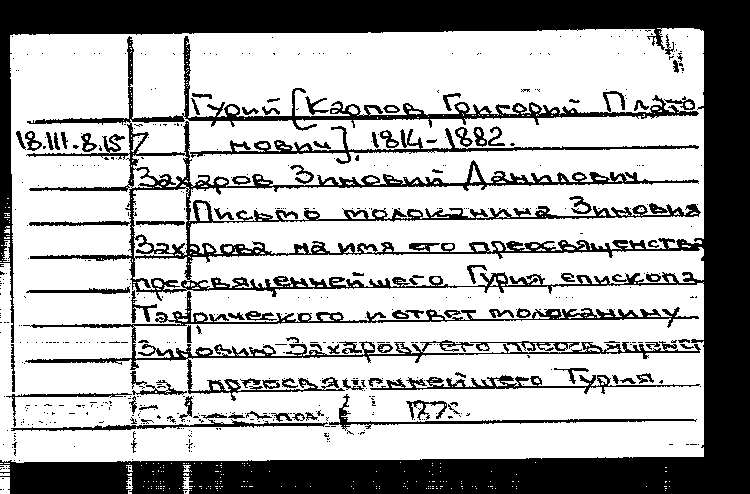 Гурий [Карпов, Григорий Плато-
18.III.8.15/ нович]. 1814-1882.
Захаров, Зиновий Данилович.
Письмо молоканина Зиновия
Захарова на имя его преосвященства
преосвященнейшего Гурия, епископа
Таврического и ответ молоканину
Зиновию Захарову его преосвященст
ва преосвященнейшего Гурия.